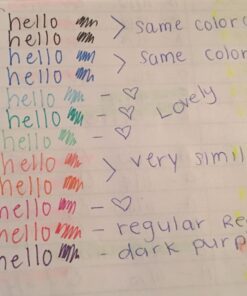 hello
hello > same color
hello
hello > same color
hello - ♡
hello - ♡ Lovely
hello - ♡
hello
hello > very simil
hello - ♡
hello - regular Re
hello - dark purp